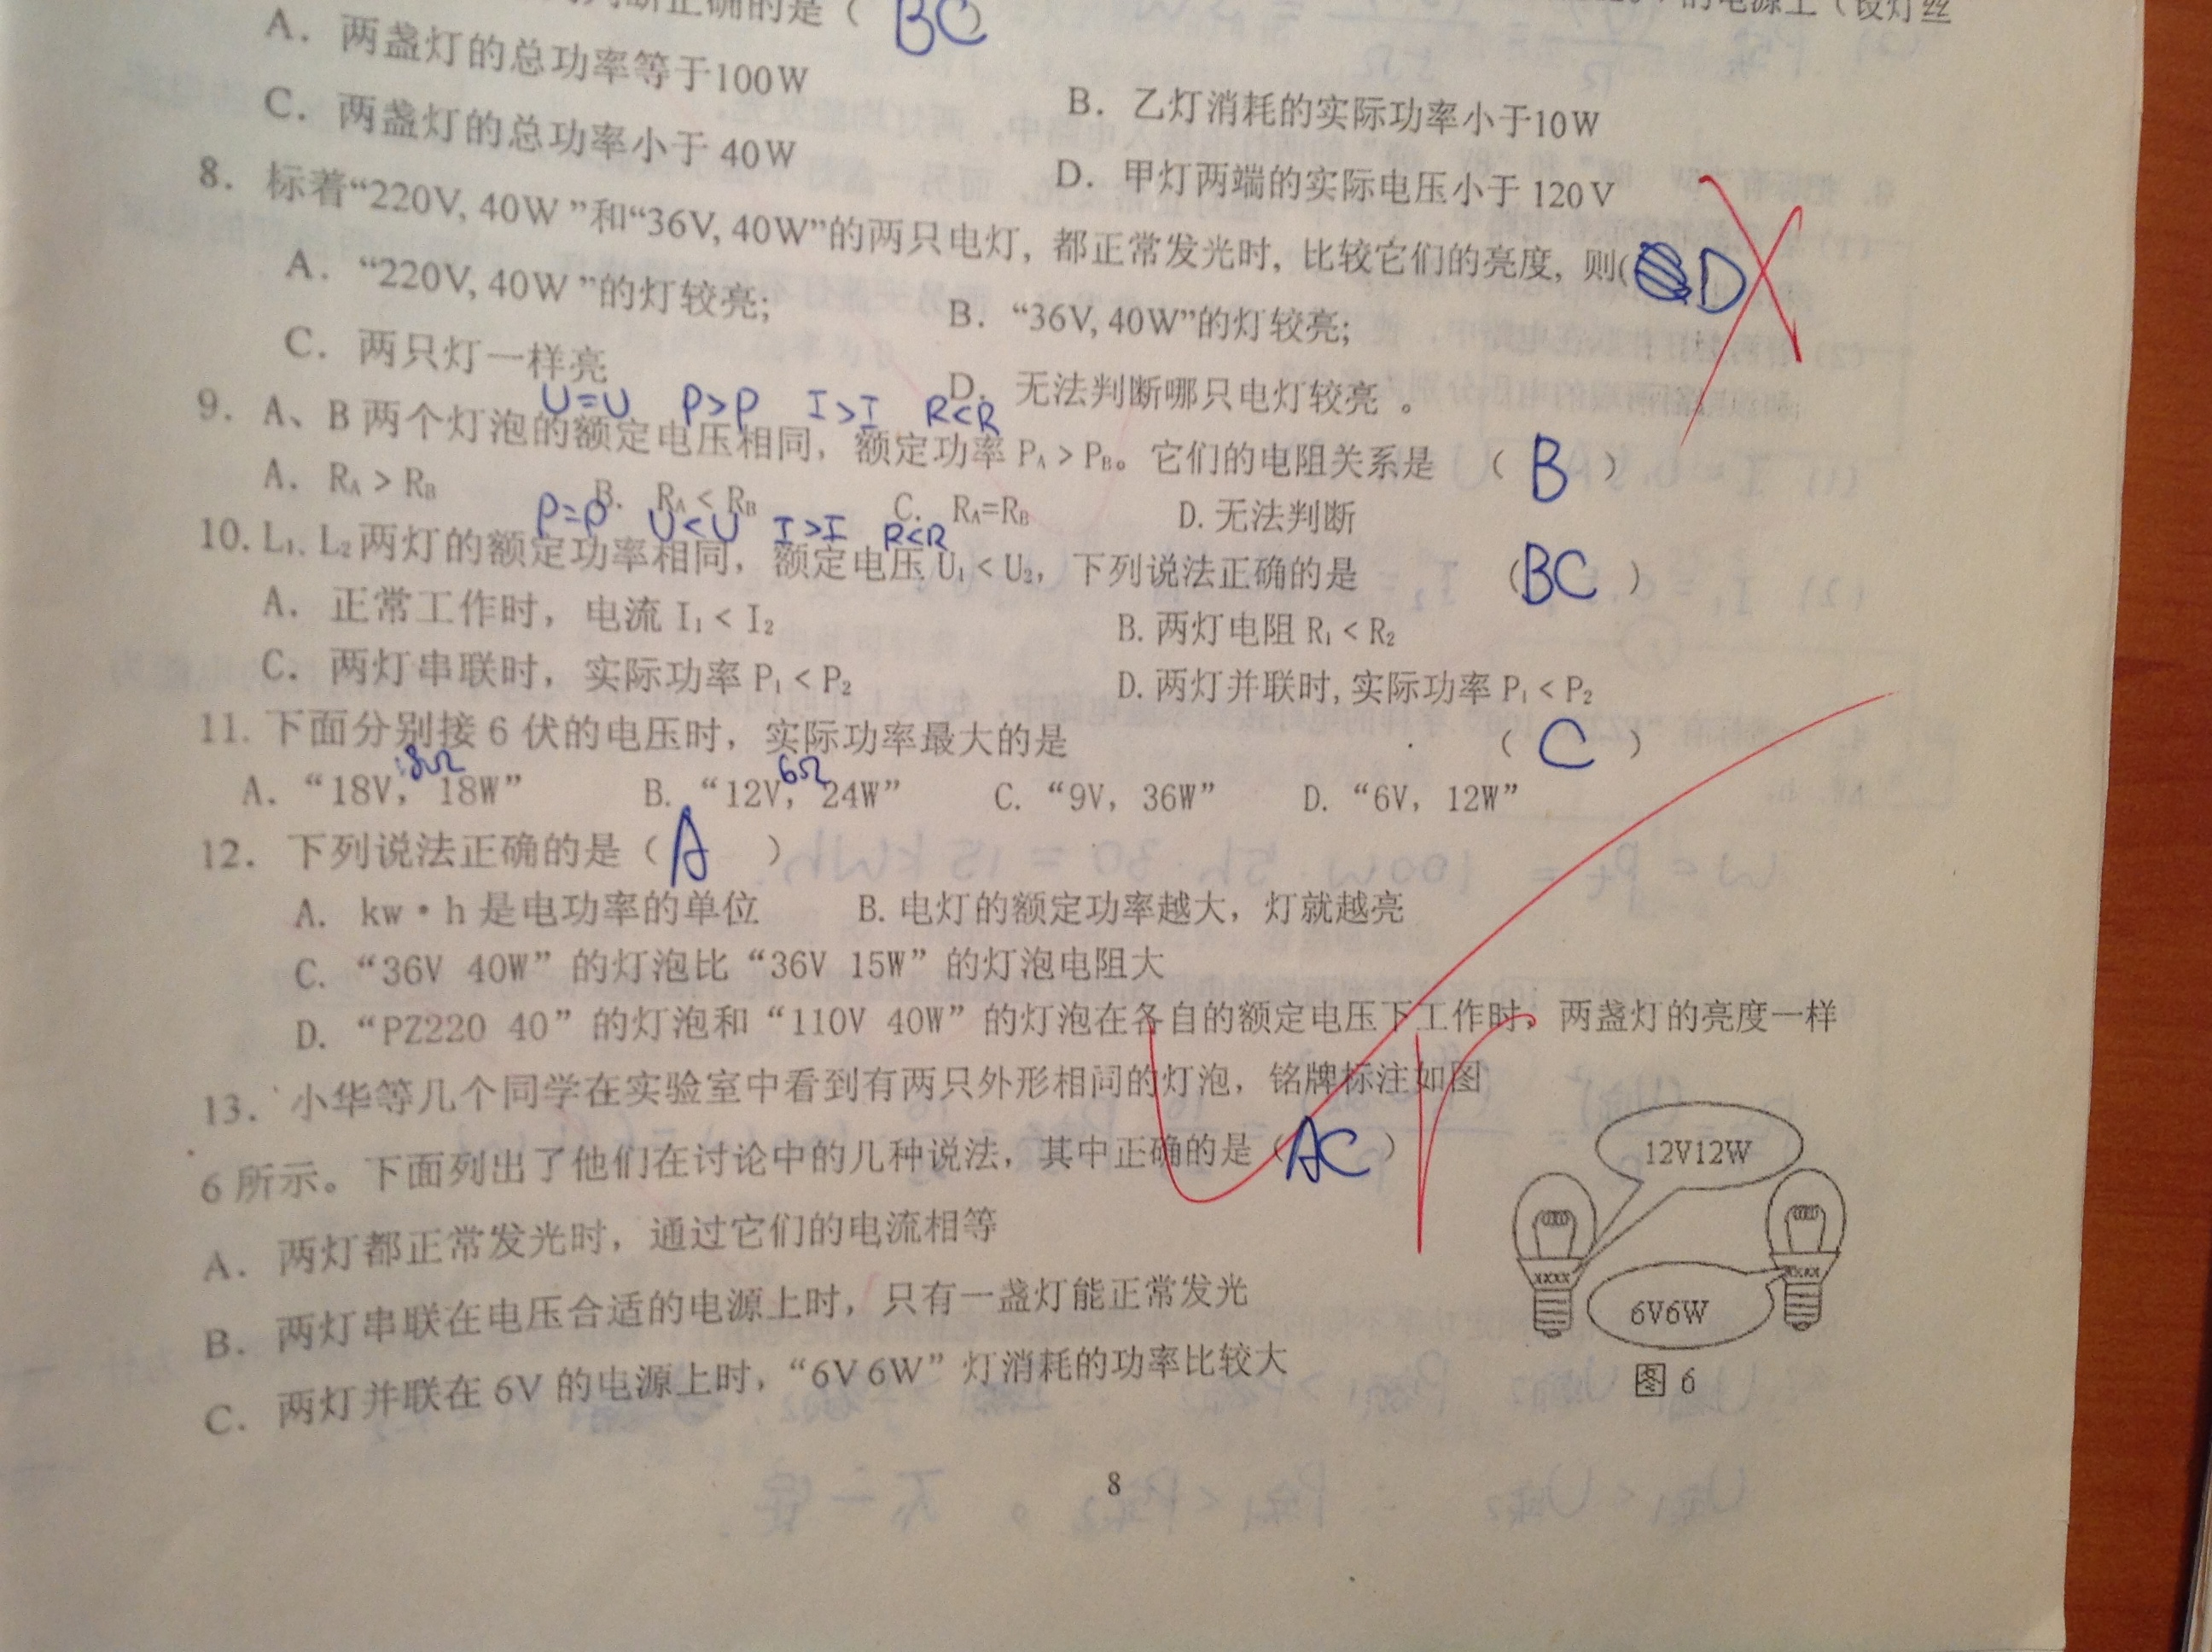 断正确的是（ BC
的电源上（设灯丝
A．两盏灯的总功率等于100W
B．乙灯消耗的实际功率小于10W
C．两盏灯的总功率小于 40W
D．甲灯两端的实际电压小于 120V
8．标着“220V, 40W ”和“36V, 40W”的两只电灯, 都正常发光时, 比较它们的亮度, 则( D
A．“220V, 40W ”的灯较亮;
B．“36V, 40W”的灯较亮;
C．两只灯一样亮
D．无法判断哪只电灯较亮 。
U=U P>P I>I R<R
9．A、B 两个灯泡的额定电压相同，额定功率 PA > PB。它们的电阻关系是 （ B ）
A．RA > RB B．RA < RB C．RA=RB D. 无法判断
P=P U<U I>I R<R
10. L1、L2 两灯的额定功率相同，额定电压 U1 < U2，下列说法正确的是 （BC ）
A．正常工作时，电流 I1 < I2
B. 两灯电阻 R1 < R2
C．两灯串联时，实际功率 P1 < P2
D. 两灯并联时, 实际功率 P1 < P2
11. 下面分别接 6 伏的电压时，实际功率最大的是 （ C ）
18Ω 6Ω
A. “18V，18W” B. “12V，24W” C. “9V，36W” D. “6V，12W”
12．下列说法正确的是（ A ）
A. kw·h 是电功率的单位 B. 电灯的额定功率越大，灯就越亮
C. “36V 40W” 的灯泡比 “36V 15W” 的灯泡电阻大
D. “PZ220 40” 的灯泡和 “110V 40W” 的灯泡在各自的额定电压下工作时，两盏灯的亮度一样
13．小华等几个同学在实验室中看到有两只外形相同的灯泡，铭牌标注如图
6 所示。下面列出了他们在讨论中的几种说法，其中正确的是（AC ）
A．两灯都正常发光时，通过它们的电流相等
B．两灯串联在电压合适的电源上时，只有一盏灯能正常发光
C．两灯并联在 6V 的电源上时，“6V 6W” 灯消耗的功率比较大
12V12W
xxxx
xxxx
6V6W
图 6
8